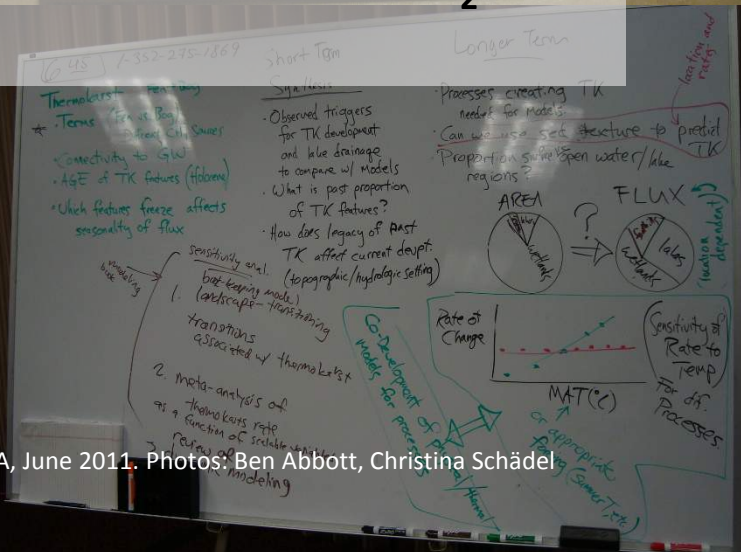 2
(645) 1-352-275-1869
Thermokarst
Terms (Fen vs Bog)
Connectivity to GW
AGE of TK features (Holocene)
Which features freeze affects
seasonality of flux
Short Term
Synthesis
Observed triggers
for TK development
and lake drainage
to compare w/ Models
What is past proportion
of TK features?
How does legacy of past
TK affect current devpt.
(topographic/hydrologic setting)
Longer Term
Processes creating TK
needed for Models.
Can we use sed. texture to predict
TK
location and
Proportion open water/lake
regions?
AREA
wetlands
?
FLUX
lakes
wetlands
(location
dependent)
sensitivity anal.
book-keeping model
1. landscape-transitioning
transitions
associated w/ thermokarst
2. meta-analysis of
thermokarst rate
as a function of scalable variables
review of
modeling
Co-Development of
models for processes
Rate of
Change
MAT (°C)
or appropriate
forcing (Summer T, etc.)
(Sensitivity of
Rate to
Temp)
For dif.
Processes.
A, June 2011. Photos: Ben Abbott, Christina Schädel